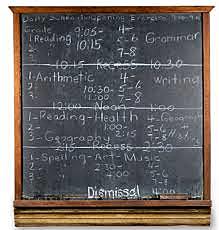 Daily Schedule-Opening Exercise
Grade 9:05- 4-
1-Reading 5-6 Grammar
2- 10:15 7-8
10:15 Recess 10:30
1-Arithmetic 4- Writing
2- 10:30- 5-6
11:00 7-8
12:00 Noon 1:00
1-Reading-Health 4-Geograph
2- 1:00- 5-6
3-Geography 7-8
2:15 Recess 2:30
1-Spelling-Art-Music
2- 2:30- 4-
4:00 5-6
Dismissal 4:00